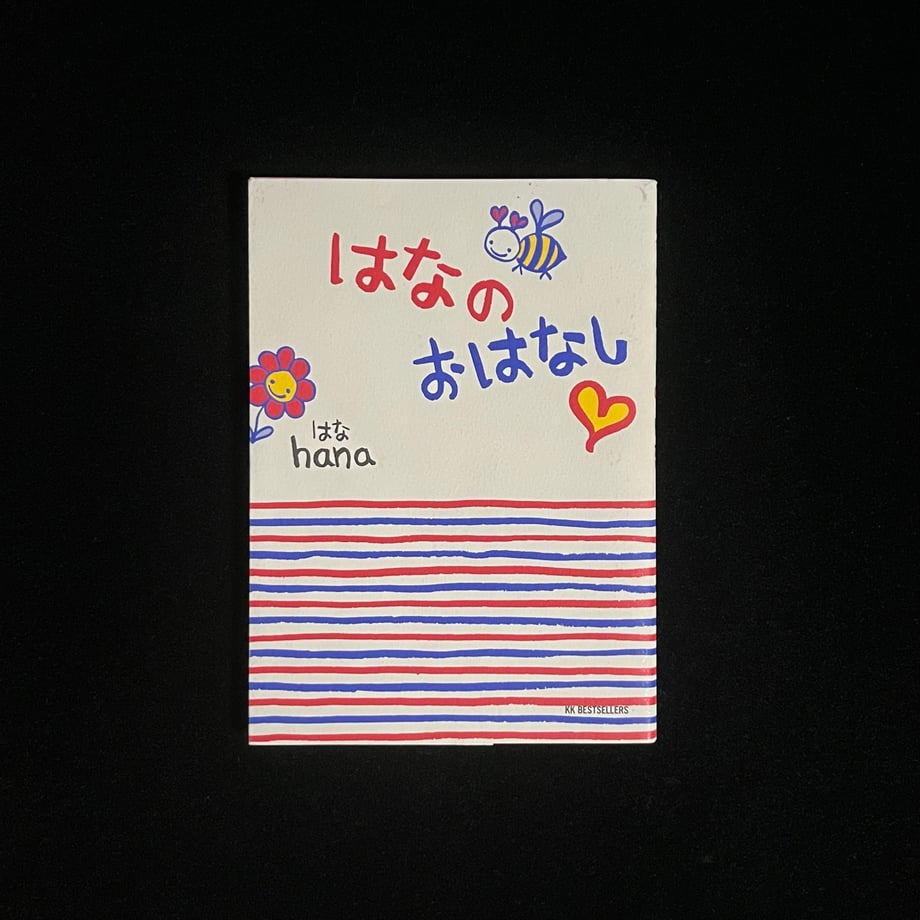 はなの
おはなし
はな
hana
KK BESTSELLERS